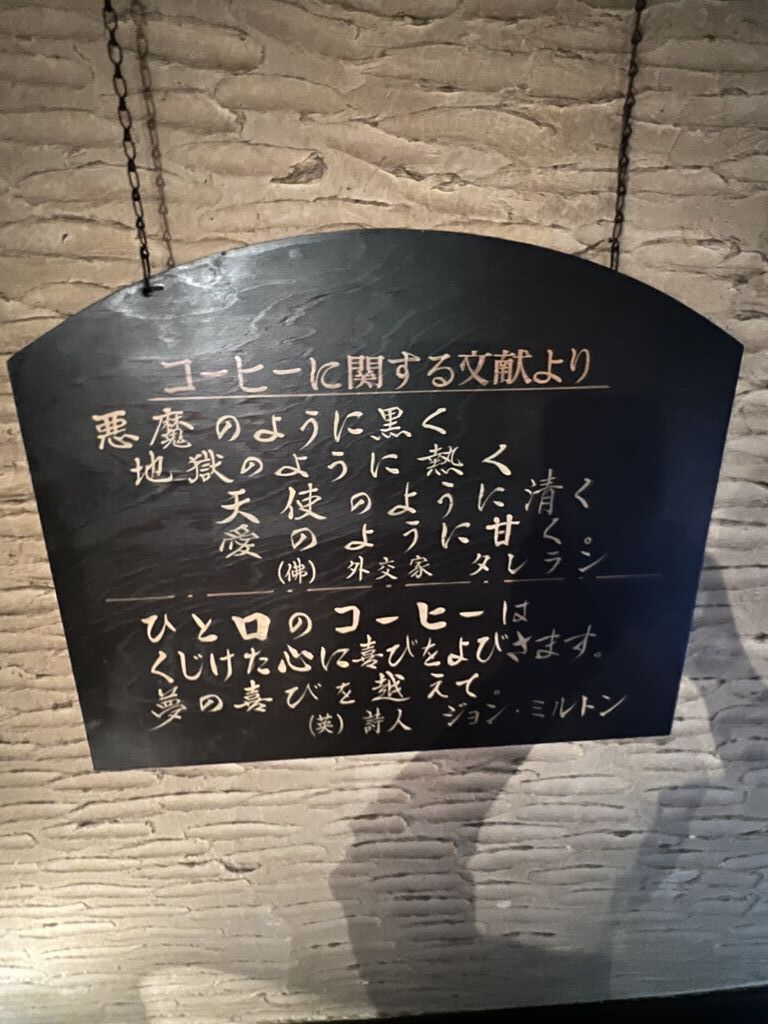 コーヒーに関する文献より
悪魔のように黒く
地獄のように熱く
天使のように清く
愛のように甘く。
(佛) 外交家 タレラン
ひと口のコーヒーは
くじけた心に喜びをよびさます。
夢の喜びを越えて。
(英) 詩人 ジョン・ミルトン